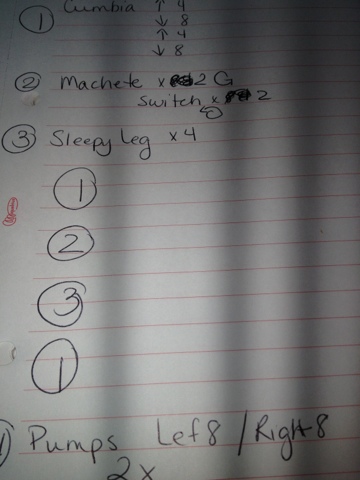 ① Cumbia ↑ 4
↓ 8
↑ 4
↓ 8
② Machete x 2 G
Switch x 2
③ Sleepy Leg x4
①
②
③
①
Pumps Left 8 / Right 8
2x